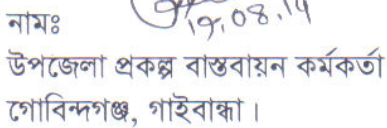 নামঃ 19.08.14
উপজেলা প্রকল্প বাস্তবায়ন কর্মকর্তা
গোবিন্দগঞ্জ, গাইবান্ধা।